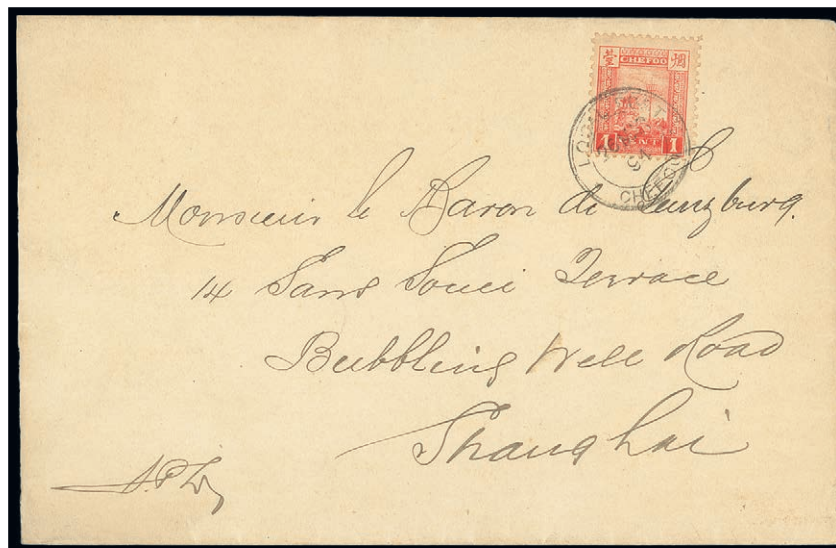 烟 CHEFOO 臺
1 CENT 1
LOCAL POST
CHEFOO
Monsieur le Baron de Gunzburg.
14 Sans Souci Terrace
Bubbling Well Road
Shanghai